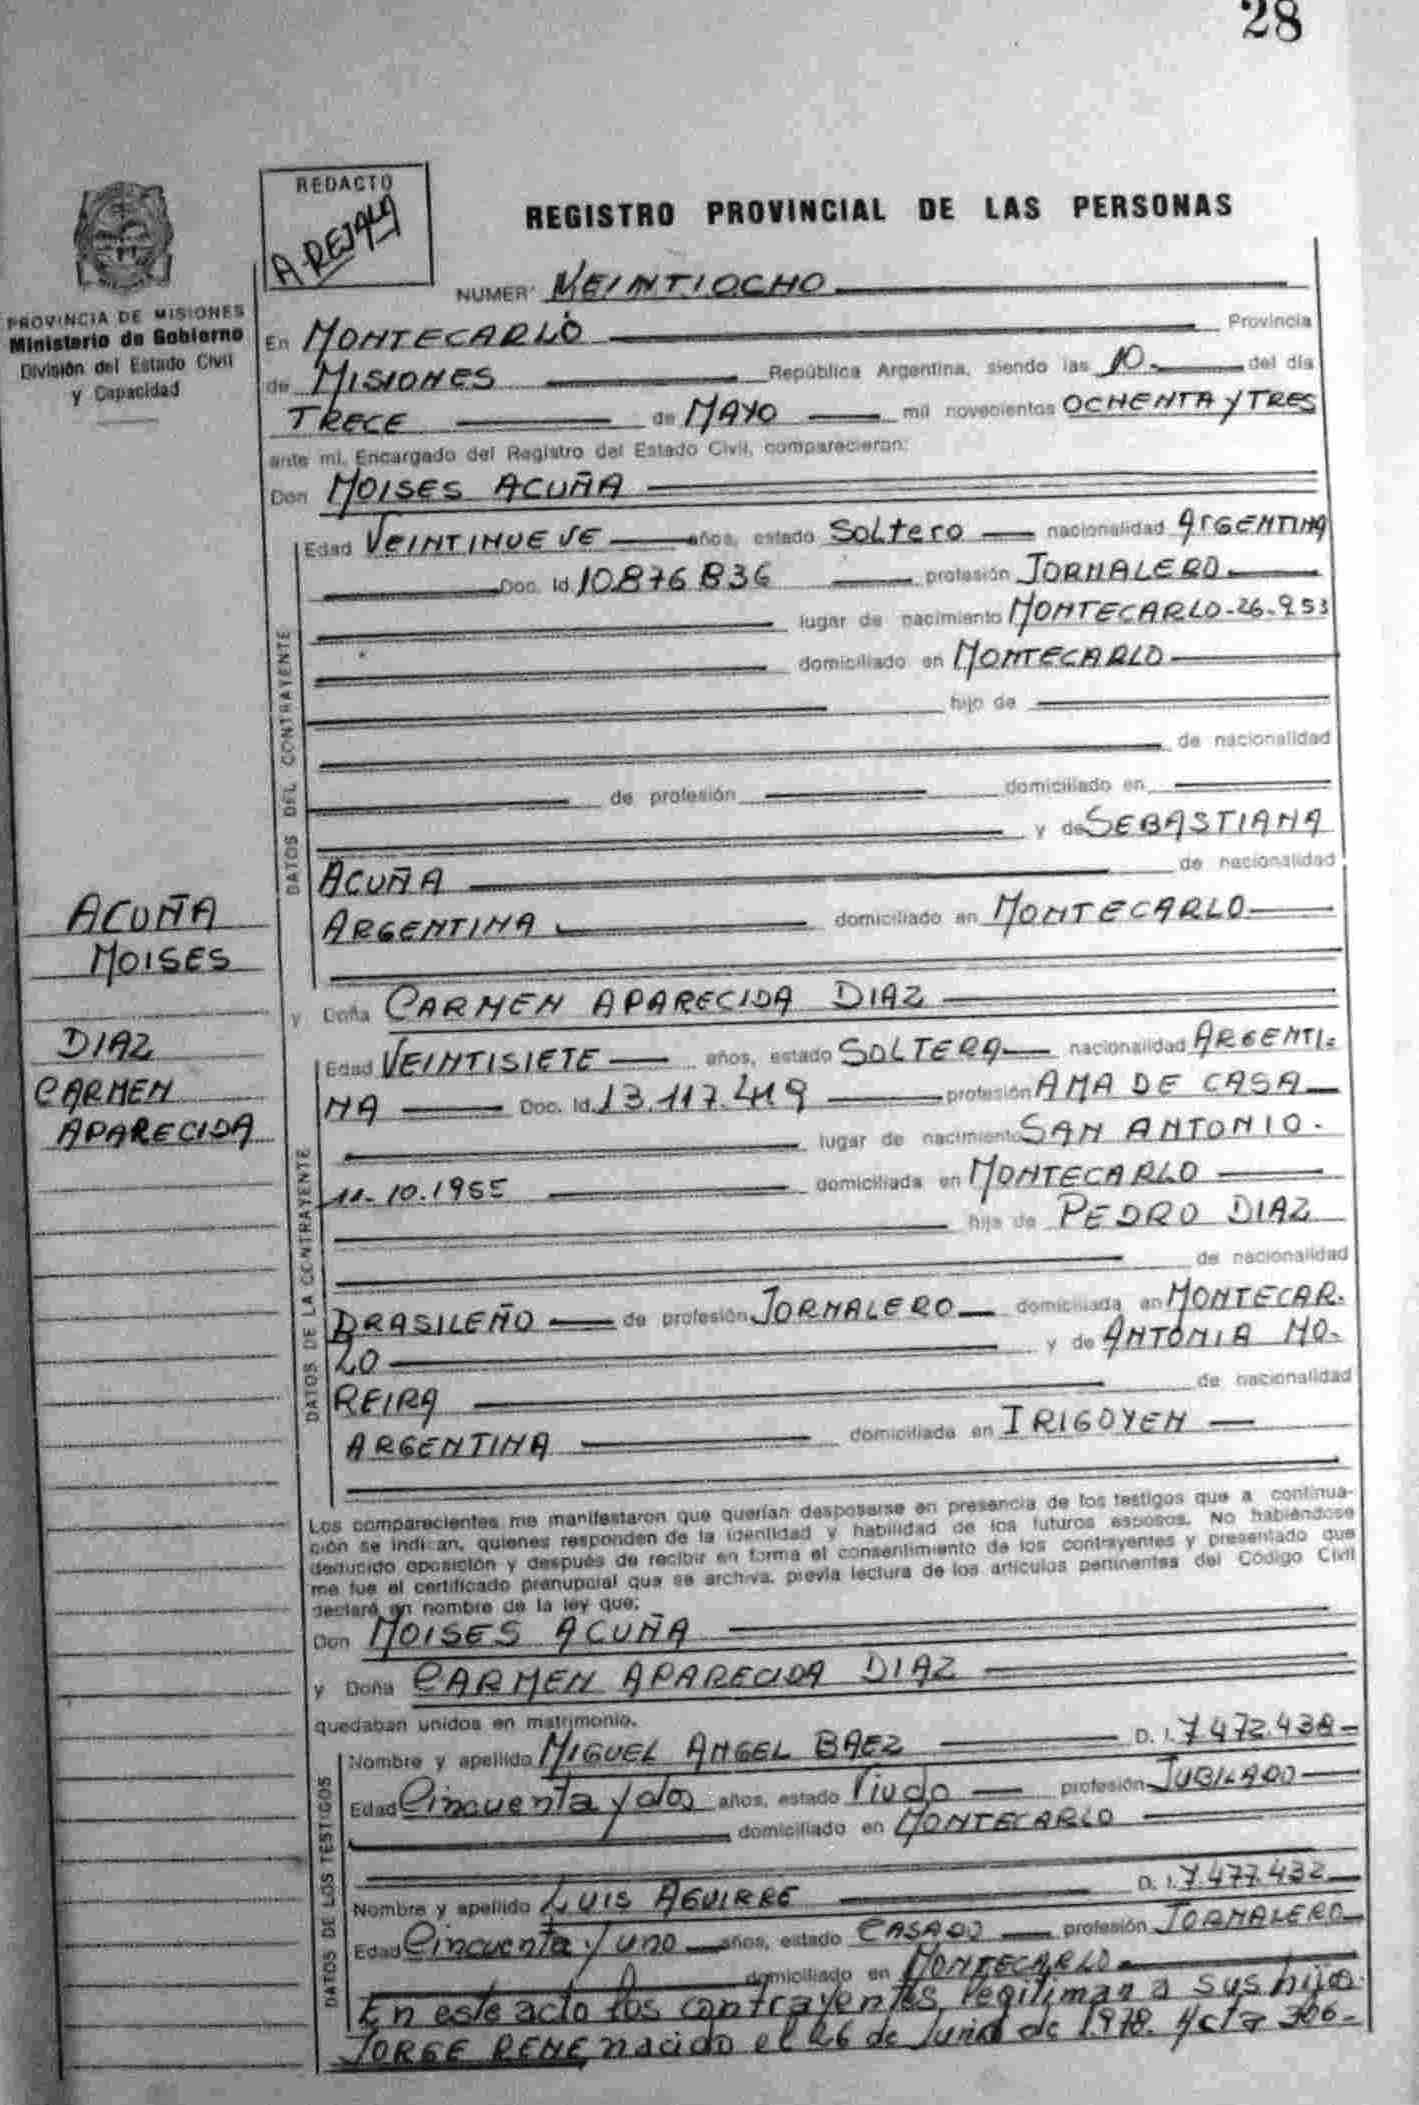 28
REDACTO
A. REJALA
REGISTRO PROVINCIAL DE LAS PERSONAS
PROVINCIA DE MISIONES
Ministerio de Gobierno
División del Estado Civil
y Capacidad
NUMERO VEINTIOCHO
En MONTECARLO Provincia
de MISIONES República Argentina, siendo las 10 del día
TRECE de MAYO mil novecientos OCHENTA Y TRES
ante mí, Encargado del Registro del Estado Civil, comparecieron:
Don MOISES ACUÑA
DATOS DEL CONTRAYENTE
Edad VEINTINUEVE años, estado Soltero nacionalidad ARGENTINA
Doc. Id. 10.876.836 profesión JORNALERO
lugar de nacimiento MONTECARLO-26-9.53
domiciliado en MONTECARLO
hijo de
de nacionalidad
de profesión domiciliado en
y de SEBASTIANA
ACUÑA de nacionalidad
ARGENTINA domiciliado en MONTECARLO
ACUÑA
MOISES
DIAZ
CARMEN
APARECIDA
y Doña CARMEN APARECIDA DIAZ
DATOS DE LA CONTRAYENTE
Edad VEINTISIETE años, estado SOLTERA nacionalidad ARGENTI-
NA Doc. Id. 13.117.419 profesión AMA DE CASA
lugar de nacimiento SAN ANTONIO.
11-10.1955 domiciliada en MONTECARLO
hija de PEDRO DIAZ
de nacionalidad
BRASILEÑO de profesión JORNALERO domiciliada en MONTECAR-
LO y de ANTONIA MO-
REIRA de nacionalidad
ARGENTINA domiciliada en IRIGOYEN
Los comparecientes me manifestaron que querían desposarse en presencia de los testigos que a continua-
ción se indican, quienes responden de la identidad y habilidad de los futuros esposos. No habiéndose
deducido oposición y después de recibir en forma el consentimiento de los contrayentes y presentado que
me fue el certificado prenupcial que se archiva, previa lectura de los artículos pertinentes del Código Civil
declaré en nombre de la ley que:
Don MOISES ACUÑA
y Doña CARMEN APARECIDA DIAZ
quedaban unidos en matrimonio.
DATOS DE LOS TESTIGOS
Nombre y apellido MIGUEL ANGEL BAEZ D. I. 7.472.438
Edad Cincuenta y dos años, estado Viudo profesión JUBILADO
domiciliado en MONTECARLO
Nombre y apellido LUIS AGUIRRE D. I. 7.477.432
Edad Cincuenta y uno años, estado CASADO profesión JORNALERO
domiciliado en MONTECARLO
En este acto los contrayentes legitiman a sus hijos
JORGE RENE nacido el 26 de Junio de 1.978. Acta 306-